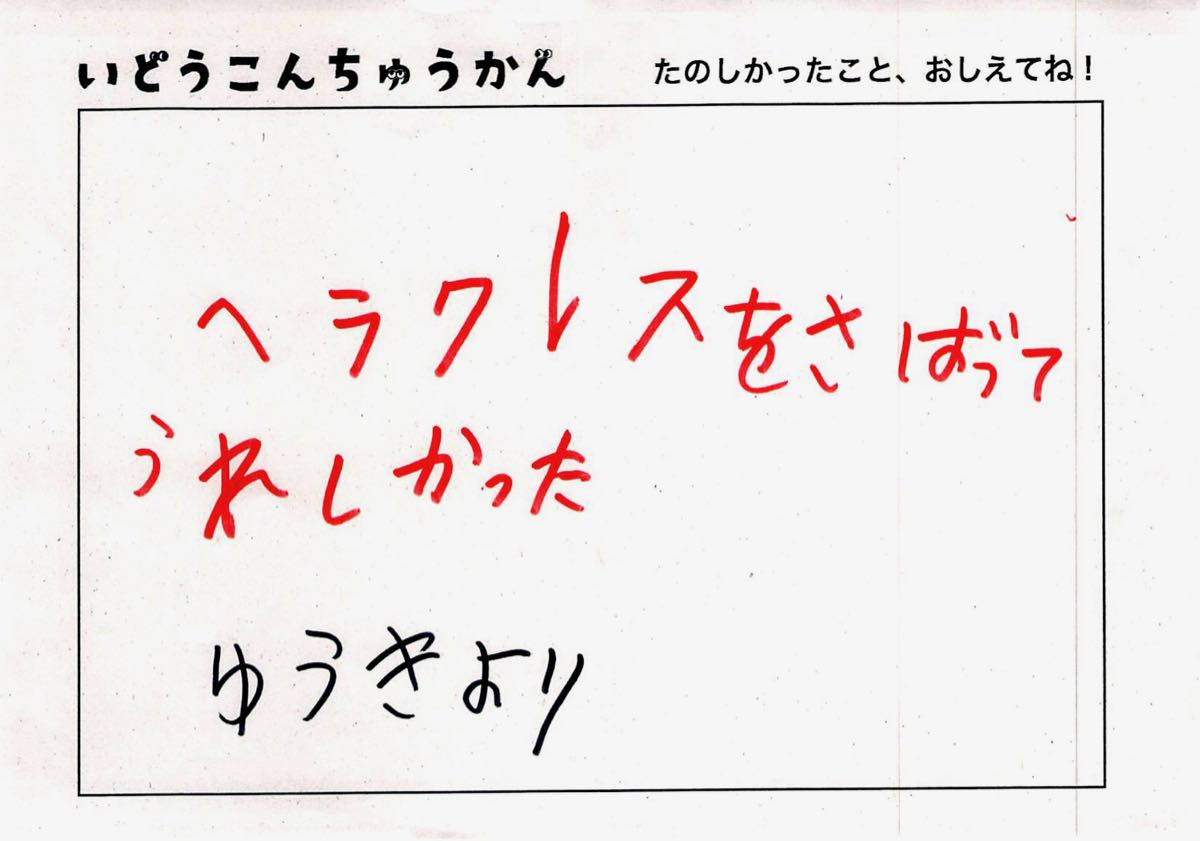 いどうこんちゅうかん たのしかったこと、おしえてね！
ヘラクレスをさばって
うれしかった
ゆうきより